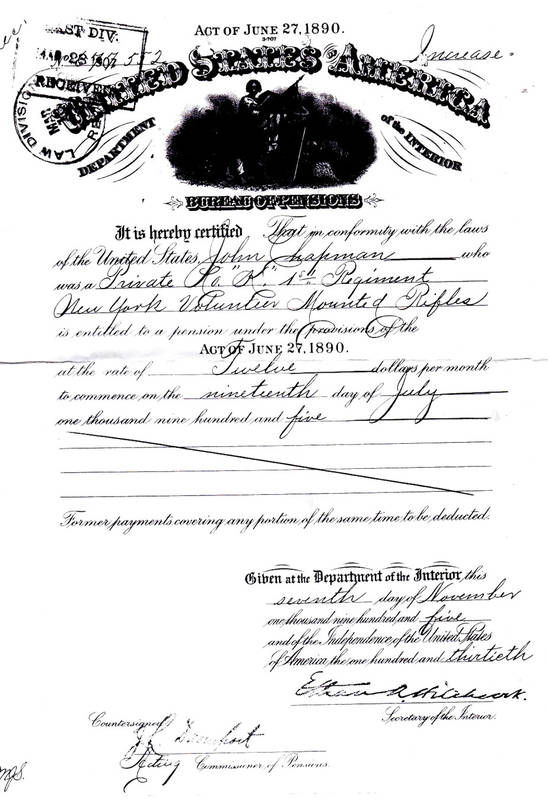 ACT OF JUNE 27, 1890.
3-707
Increase.
EAST DIV.
552
RECEIVED
LAW DIVISION
UNITED STATES OF AMERICA
DEPARTMENT of the INTERIOR
BUREAU OF PENSIONS
It is hereby certified That in conformity with the laws
of the United States John Chapman who
was a Private Co. "K" 1st Regiment
New York Volunteer Mounted Rifles
is entitled to a pension under the provisions of the
ACT OF JUNE 27, 1890.
at the rate of Twelve dollars per month
to commence on the nineteenth day of July
one thousand nine hundred and five
Former payments covering any portion of the same time to be deducted.
Given at the Department of the Interior this
seventh day of November
one thousand nine hundred and five
and of the Independence of the United States
of America the one hundred and thirtieth
Ethan A. Hitchcock.
Secretary of the Interior.
Countersigned
Acting Commissioner of Pensions.